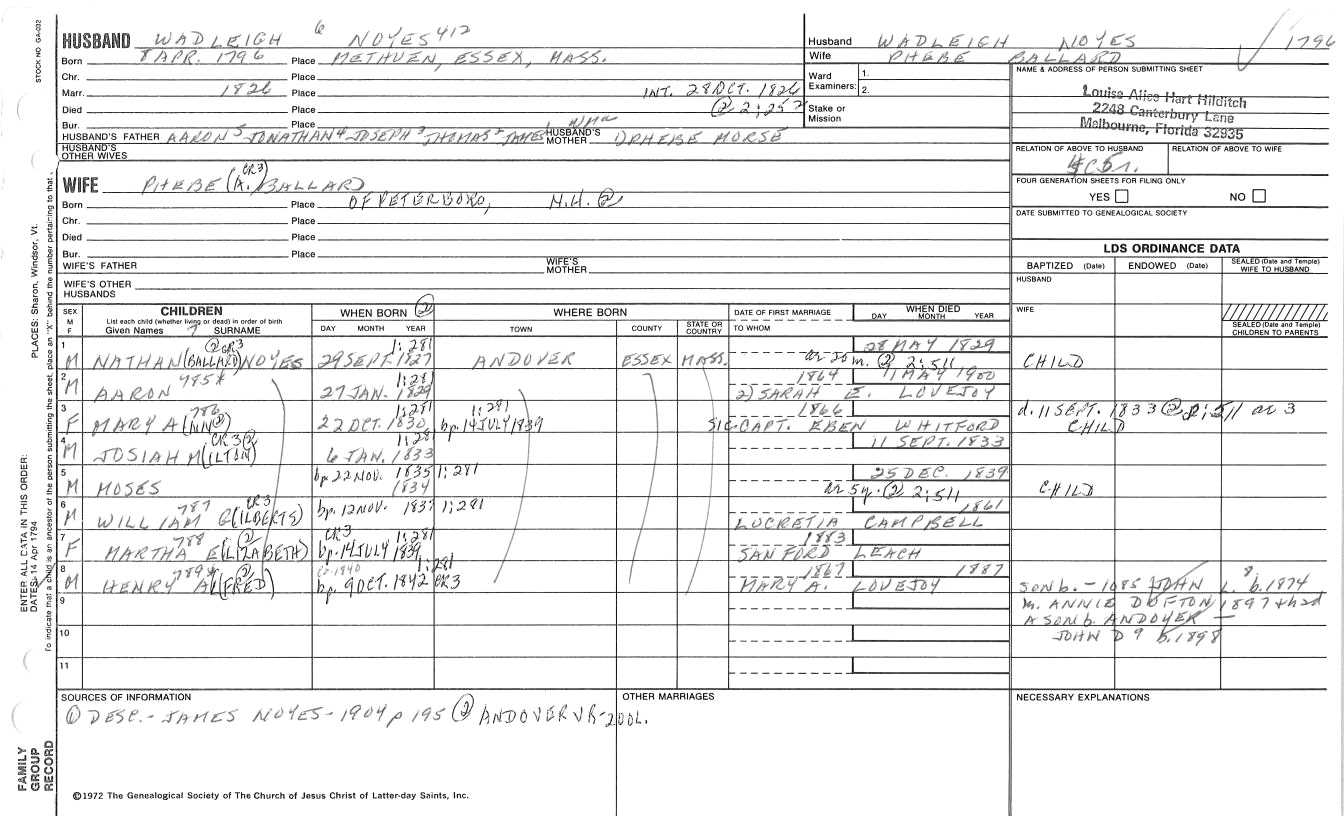 STOCK NO GA-032
HUSBAND WADLEIGH 6 NOYES 412
Born 8 APR. 1796 Place METHUEN, ESSEX, MASS.
Chr. Place
Marr. 1826 Place INT. 28 OCT. 1826
Died Place (2) 2:252
Bur. Place
HUSBAND'S FATHER AARON5 JONATHAN4 JOSEPH3 THOMAS2 JAMES1 HUSBAND'S MOTHER OPHEIBE MORSE
HUSBAND'S OTHER WIVES
Husband WADLEIGH NOYES 1796
Wife PHEBE BALLARD
Ward Examiners: 1.
2.
Stake or Mission
NAME & ADDRESS OF PERSON SUBMITTING SHEET
Louise Alice Hart Hilditch
2248 Canterbury Lane
Melbourne, Florida 32935
RELATION OF ABOVE TO HUSBAND RELATION OF ABOVE TO WIFE
4C5r.
FOUR GENERATION SHEETS FOR FILING ONLY
YES NO
DATE SUBMITTED TO GENEALOGICAL SOCIETY
CR3
WIFE PHEBE (A.) BALLARD
Born Place OF PETERBORO, N.H. (2)
Chr. Place
Died Place
Bur. Place
WIFE'S FATHER WIFE'S MOTHER
WIFE'S OTHER HUSBANDS
LDS ORDINANCE DATA
BAPTIZED (Date) ENDOWED (Date) SEALED (Date and Temple) WIFE TO HUSBAND
HUSBAND
WIFE
SEALED (Date and Temple) CHILDREN TO PARENTS
SEX M F
CHILDREN
List each child (whether living or dead) in order of birth
Given Names 7 SURNAME
WHEN BORN (2)
DAY MONTH YEAR
WHERE BORN
TOWN COUNTY STATE OR COUNTRY
DATE OF FIRST MARRIAGE
TO WHOM
WHEN DIED
DAY MONTH YEAR
(2) CR3 1:281 28 MAY 1829
1 M NATHAN (BALLARD) NOYES 29 SEPT. 1827 ANDOVER ESSEX MASS. ar 20m. (2) 2:511 CHILD
785* 1:281 1864 11 MAY 1900
2 M AARON 27 JAN. 1829 2) SARAH E. LOVEJOY
786 1:281 1:281 1866 d. 11 SEPT. 1833 (2) 2:511 ar 3
3 F MARY A(NN(2)) 22 OCT. 1830 bp. 14 JULY 1839 SIC CAPT. EBEN WHITFORD CHILD
CR3 (2) 1:281 11 SEPT. 1833
4 M JOSIAH M(ILTON) 6 JAN. 1833
bp 22 NOV. 1835 1:281 25 DEC. 1839
5 M MOSES 1834 ar 5y. (2) 2:511 CHILD
787 CR3 1861
6 M WILLIAM G(ILBERTS) bp. 12 NOV. 1837 1:281 LUCRETIA CAMPBELL
788 (2) CR3 1:281 1883
7 F MARTHA E(LIZABETH) bp. 14 JULY 1839 SANFORD LEACH
789* (2) 1840 1:281 1867 1887
8 M HENRY A(LFRED) bp. 9 OCT. 1842 CR3 MARY A. LOVEJOY SON b. - 1085 JOHN L.8 b. 1874
9 m. ANNIE DUFTON 1897 + had
A SON b. ANDOVER -
10 JOHN D9 b. 1898
11
SOURCES OF INFORMATION OTHER MARRIAGES NECESSARY EXPLANATIONS
(1) DESC.- JAMES NOYES - 1904 p 195 (2) ANDOVER VR - 2 VOL.
©1972 The Genealogical Society of The Church of Jesus Christ of Latter-day Saints, Inc.
PLACES: Sharon, Windsor, Vt.
ENTER ALL DATA IN THIS ORDER:
DATES: 14 Apr 1794
To indicate that a child is an ancestor of the person submitting the sheet, place an "X" behind the number pertaining to that
FAMILY
GROUP
RECORD